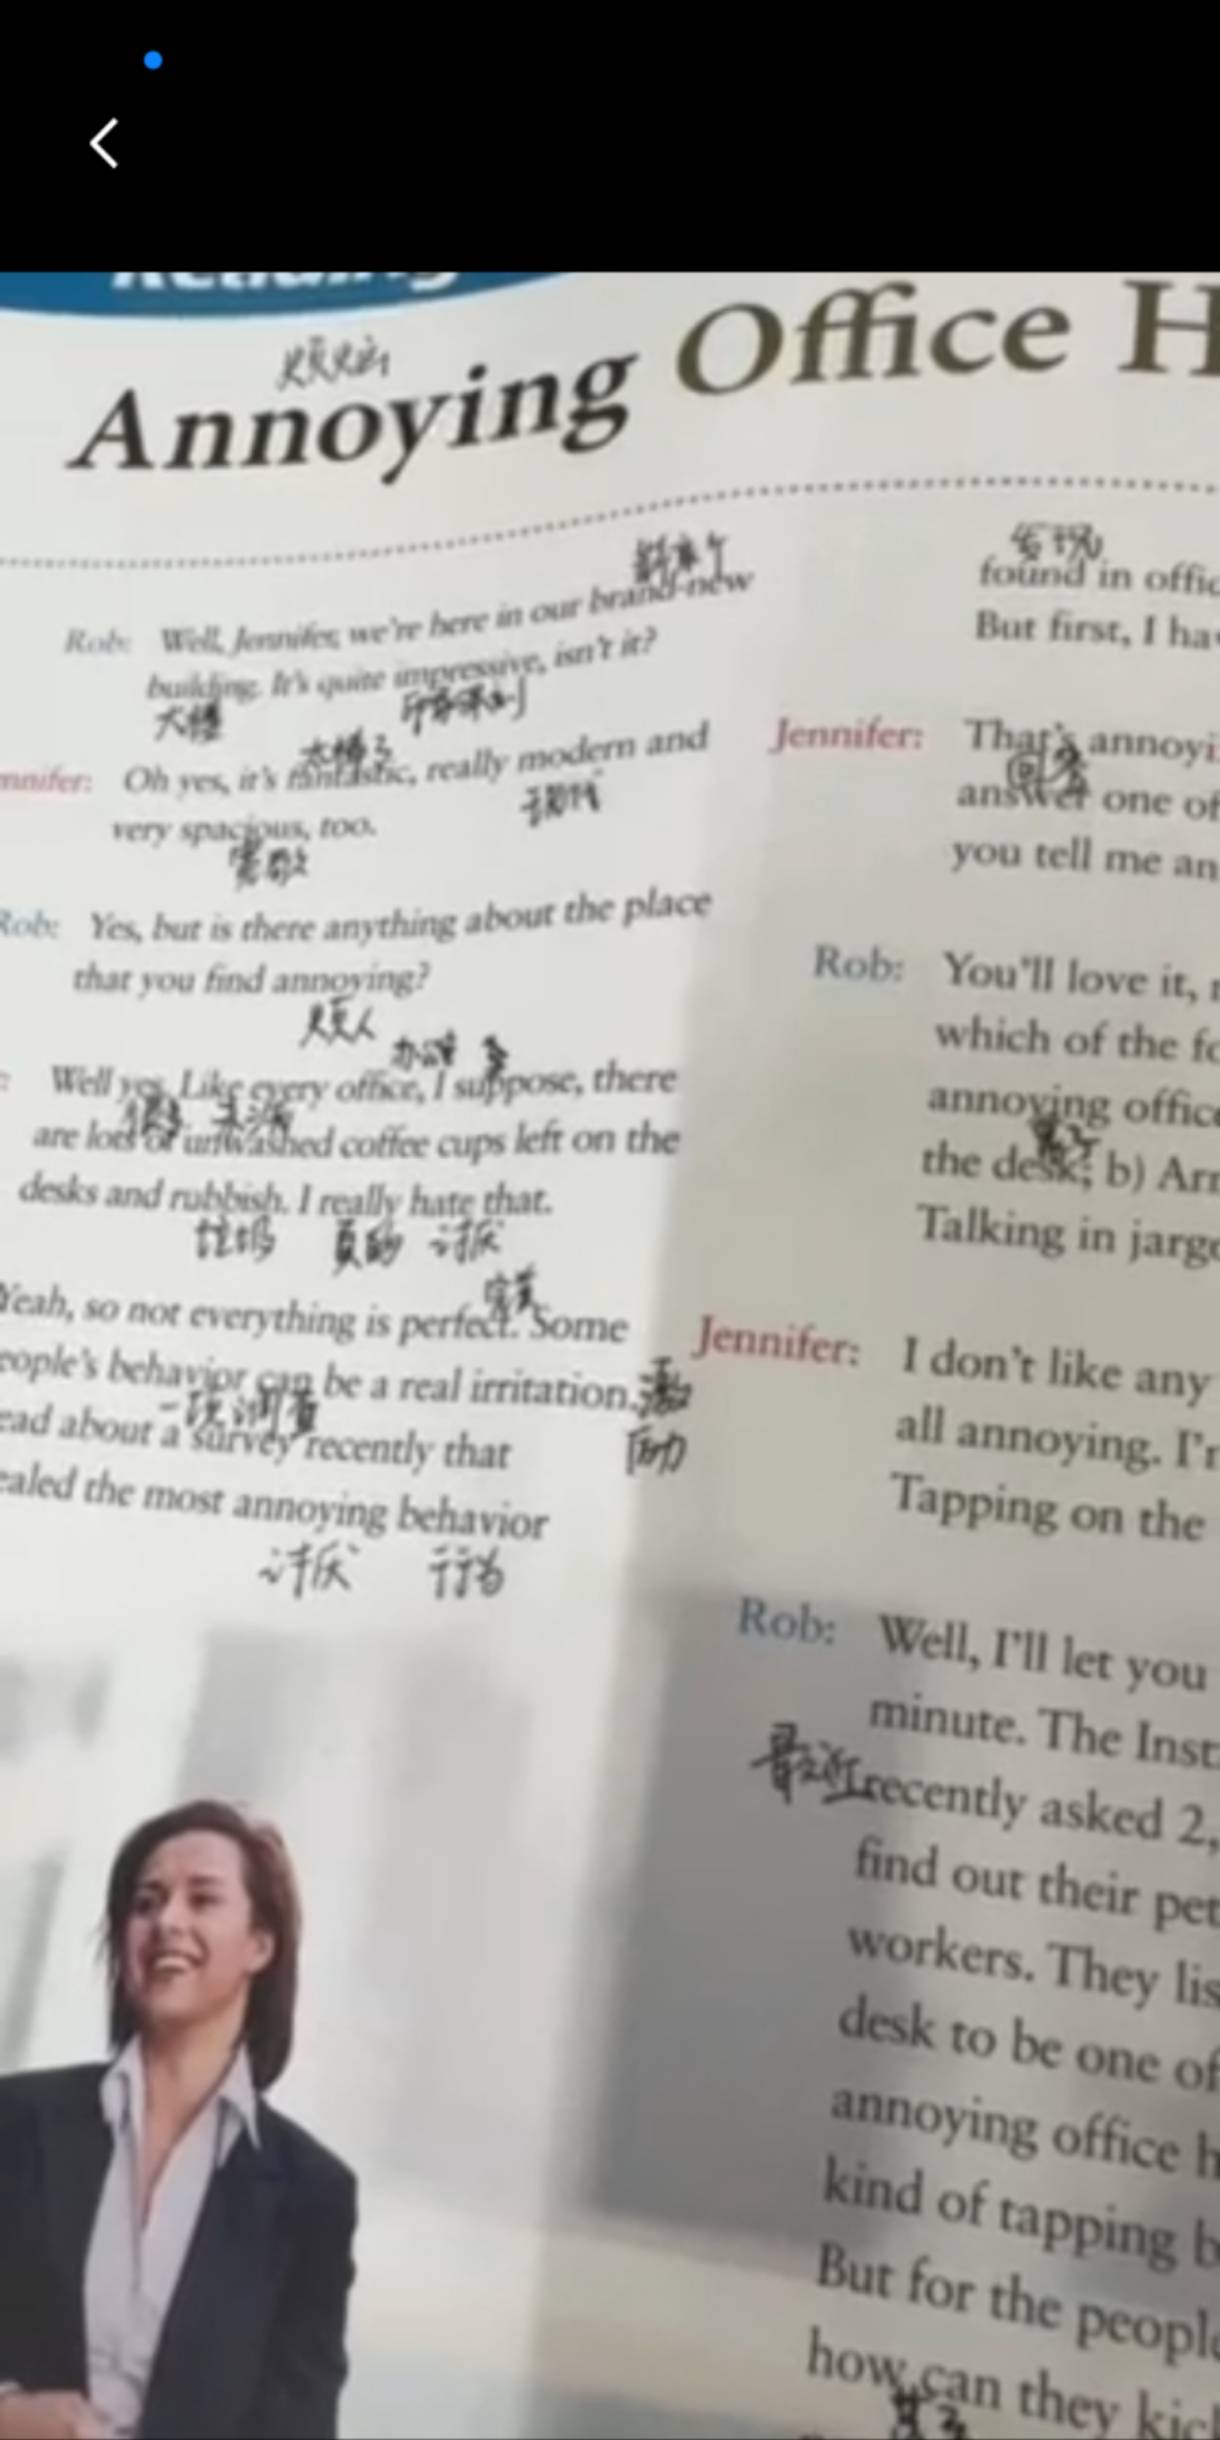 Reading
Annoying Office H
烦恼
Rob: Well, Jennifer, we're here in our brand-new
building. It's quite impressive, isn't it?
大楼
nnifer: Oh yes, it's fantastic, really modern and
太棒了
现代
very spacious, too.
宽敞
Rob: Yes, but is there anything about the place
that you find annoying?
烦人
办公室
: Well yes. Like every office, I suppose, there
are lots of unwashed coffee cups left on the
desks and rubbish. I really hate that.
垃圾 真的 讨厌
完美
Yeah, so not everything is perfect. Some
eople's behavior can be a real irritation.
一项调查
ead about a survey recently that
ealed the most annoying behavior
讨厌 行为
发现
found in offic
But first, I ha
Jennifer: That's annoyi
回答
answer one of
you tell me an
Rob: You'll love it,
which of the fo
annoying office
the desk; b) Arr
Talking in jargo
Jennifer: I don't like any
all annoying. I'
Tapping on the
Rob: Well, I'll let you
minute. The Inst
最近 recently asked 2,
find out their pet
workers. They lis
desk to be one of
annoying office h
kind of tapping b
But for the people
how can they kic